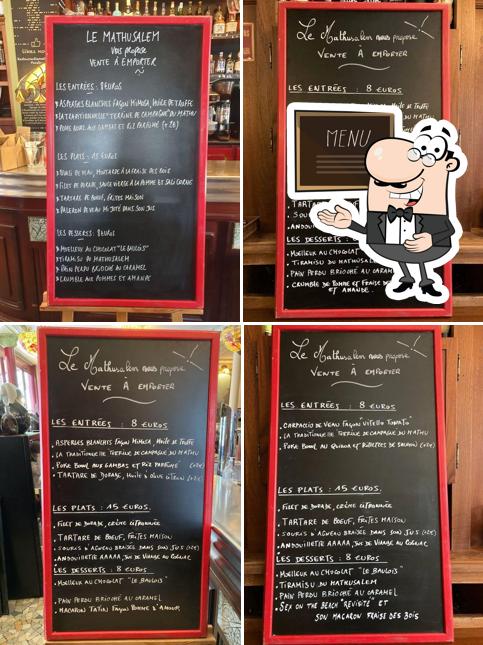 LE MATHUSALEM
VOUS PROPOSE
VENTE À EMPORTER
LES ENTRÉES : 8 EUROS
ASPERGES BLANCHES FAÇON MIMOSA, HUILE DE TRUFFE
LA TRADITIONNELLE "TERRINE DE CAMPAGNE" DU MATHU
POKE BOWL AUX GAMBAS ET RIZ PARFUMÉ (+2€)
LES PLATS : 15 EUROS
DE VEAU, MOUTARDE À LA FRAISE DES BOIS
FILET DE DORADE, SAUCE VIERGE À LA POMME ET
TARTARE DE BOEUF, FRITES MAISON
PALERON DE VEAU MIJOTÉ DANS SON JUS
LES DESSERTS : 8 EUROS
MOELLEUX AU CHOCOLAT "LE BAULOIS"
TIRAMISU DU MATHUSALEM
PAIN PERDU BRIOCHÉ AU CARAMEL
CRUMBLE AUX POMMES ET AMANDE
Le Mathusalem nous propose
VENTE À EMPORTER
LES ENTRÉES : 8 EUROS
Huile de Truffe
MATHU
MENU
TARTAR
SOU
ANDOUI
LES DESSERTS :
MOELLEUX AU CHOCOLAT
TIRAMISU DU MATHUSAL
PAIN PERDU BRIOCHÉ AU CARAM
CRUMBLE DE POMME ET FRAISE DE
ET AMANDE.
Le Mathusalem nous propose
VENTE À EMPORTER
LES ENTRÉES : 8 EUROS
ASPERGES BLANCHES Façon MIMOSA, Huile de Truffe
LA TRADITIONNELLE TERRINE DE CAMPAGNE DU MATHU
POKE BOWL AUX GAMBAS ET RIZ PARFUMÉ (+2€)
TARTARE DE DORADE, Huile d'olive CITRON (+2€)
LES PLATS : 15 EUROS.
FILET DE DORADE, CRÈME CITRONNÉE
TARTARE DE BOEUF, FRITES MAISON
SOURIS D'AGNEAU BRAISÉE DANS SON JUS (+2€)
ANDOUILLETTE AAAAA, JUS DE VIANDE AU
LES DESSERTS : 8 EUROS
MOELLEUX AU CHOCOLAT "LE BAULOIS"
PAIN PERDU BRIOCHÉ AU CARAMEL
MACARON TATIN FAÇON POMME D'AMOUR
Le Mathusalem nous propose
VENTE À EMPORTER
LES ENTRÉES : 8 EUROS
CARPACCIO DE VEAU FAÇON VITELLO TOMATO
LA TRADITIONNELLE TERRINE DE CAMPAGNE DU MATHU
POKE BOWL AU QUINOA ET RILLETTES DE SAUMON (+2€)
LES PLATS : 15 EUROS.
FILET DE DORADE, CRÈME CITRONNÉE
TARTARE DE BOEUF, FRITES MAISON
SOURIS D'AGNEAU BRAISÉE DANS SON JUS (+2€)
ANDOUILLETTE AAAAA, JUS DE VIANDE AU
LES DESSERTS : 8 EUROS
MOELLEUX AU CHOCOLAT "LE BAULOIS"
TIRAMISU DU MATHUSALEM
PAIN PERDU BRIOCHÉ AU CARAMEL
SEX ON THE BEACH "REVISITÉ" ET
SON MACARON FRAISE DES BOIS